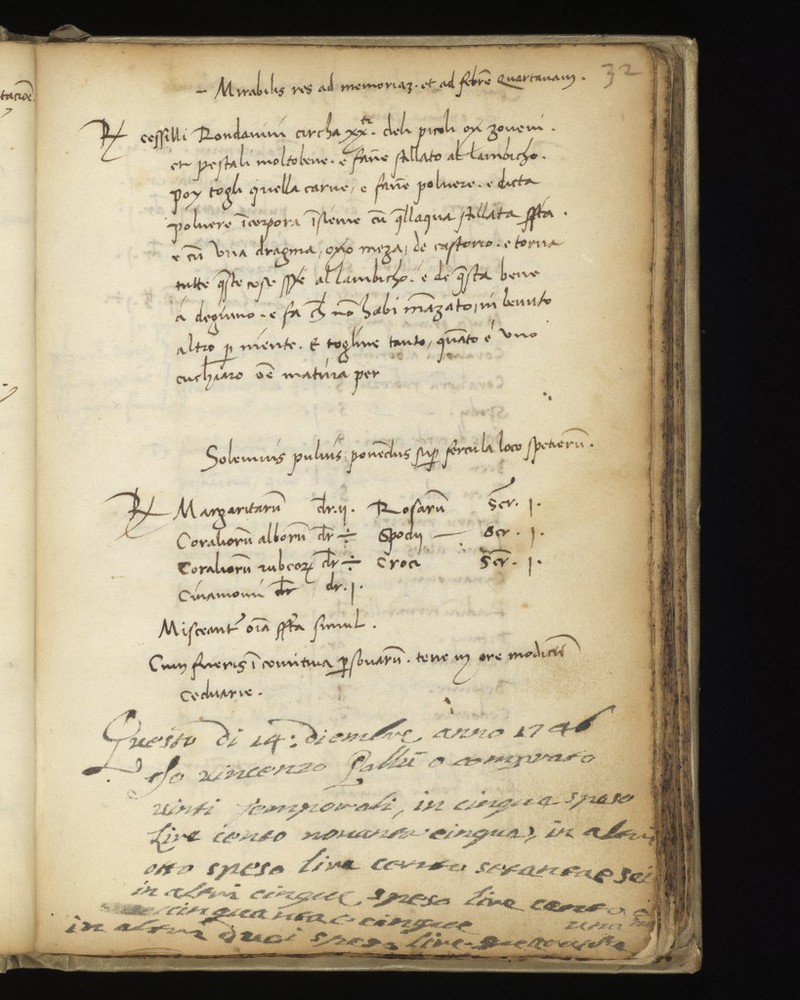 32
- Mirabilis res ad memoriaz. et ad febrē Quartanam.
℞ cessilli Rondanini circha xx. deli picoli on zoveni.
et pestali molto bene. e fane stillato al lambicho.
poy togli quella carne, e fane polvere. e dicta
polvere īcorpora īsieme cū q̄llaqua stillata
e cū una dragma, o meza, de castorio. e torna
tutte q̄ste cose al lambicho. e de q̄sta bene
a degiuno. e fa ch nō habi māzato, ni bevuto
altro p niente. E togline tanto, quāto è uno
cuchiaro oē matina per
Solemnis pulvis ponendus sup fercula loco spetierū.
℞ Margaritarū dr. ij. Rosarū Scr. j.
Coraliorū alborū dr ÷ Spodij — Scr. j.
Coraliorū rubeoꝝ dr ÷ Croci Scr. j.
Cinamomi dr dr. j.
Misceant oīa simul.
Cum fueris ī comitiva psonarū. tene in ore modicū
Ceduarie.
Questo di 14: diembre, anno 1746
Io vincenzo o comprato
vinti temporali, in cinqua speso
Lire cento novanta cinqua, in altri
otto speso lire cento setantae sei
in altri cinque speso lire cento e
cinquanta e cinque
in altri duei speso lire